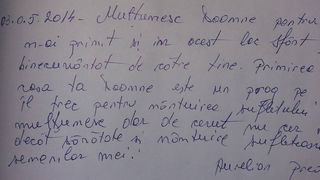 03.05.2014 - Multumesc Doamne pentru
m-ai primit si in acest loc sfânt
binecuvântat de către tine. Primirea
ta Doamne este un prag pe
îl trec pentru mântuirea sufletului
multumesc dar de cerut nu cer
decât sănătate si mântuire sufletească
semenilor mei!
Aurelian